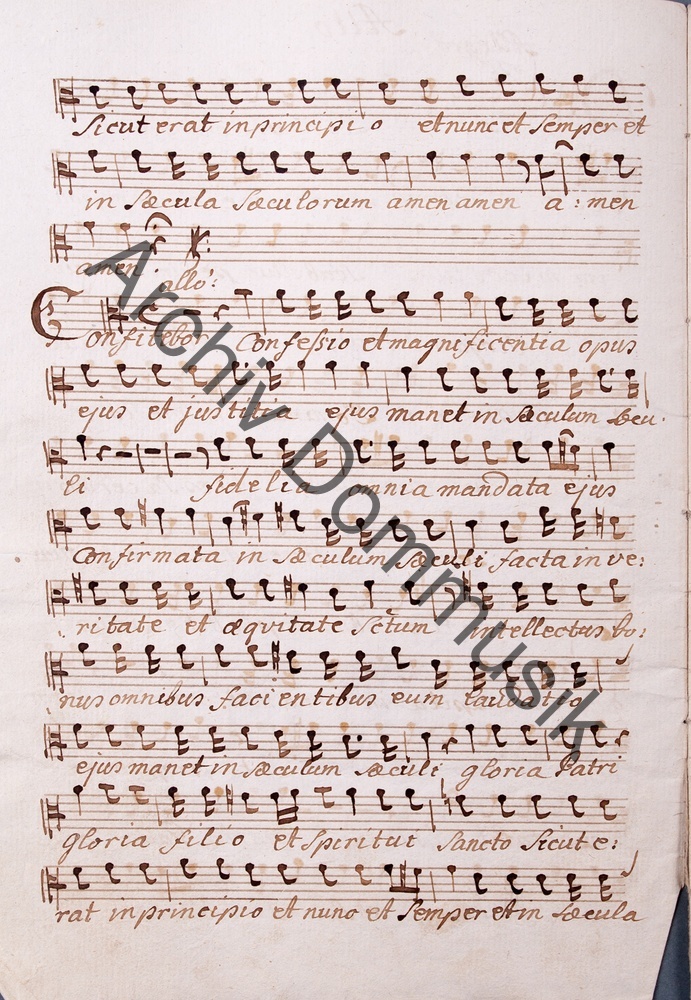 Sicut erat in principio et nunc et Semper et
in Sæcula Sæculorum amen amen a: men
amen
allo:
Confitebor Confeßio et magnificentia opus
ejus et justitia ejus manet in Sæculum Sæcu:
li fidelia omnia mandata ejus
Confirmata in Sæculum Sæculi facta in ve:
ritate et æqvitate Sctum intellectus bo:
nus omnibus facientibus eum laudatio
ejus manet in Sæculum Sæculi gloria Patri
gloria filio et Spiritui Sancto Sicut e:
rat in principio et nunc et Semper et in Sæcula
Archiv Dommusik